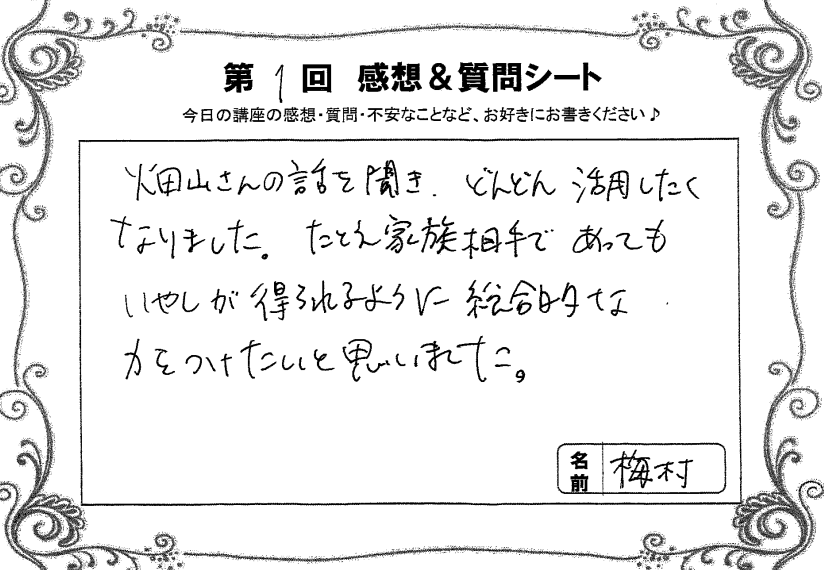 第1回 感想&質問シート
今日の講座の感想・質問・不安なことなど、お好きにお書きください♪
畑山さんの話を聞き、どんどん活用したく
なりました。たとえ家族相手であっても
いやしが得られるように総合的な
力をつけたいと思いました。
名前 梅村